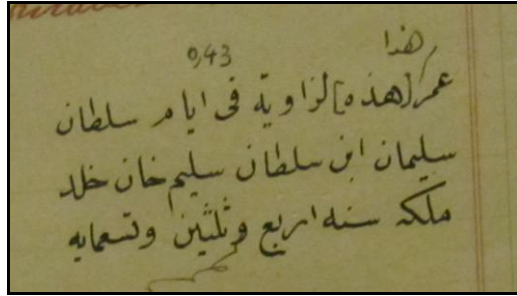 هذا
0,43
عمر [هذه] لزاوية فى ايام سلطان
سليمان ابن سلطان سليم خان خلد
ملكه سنه اربع وثلثين وتسعمايه